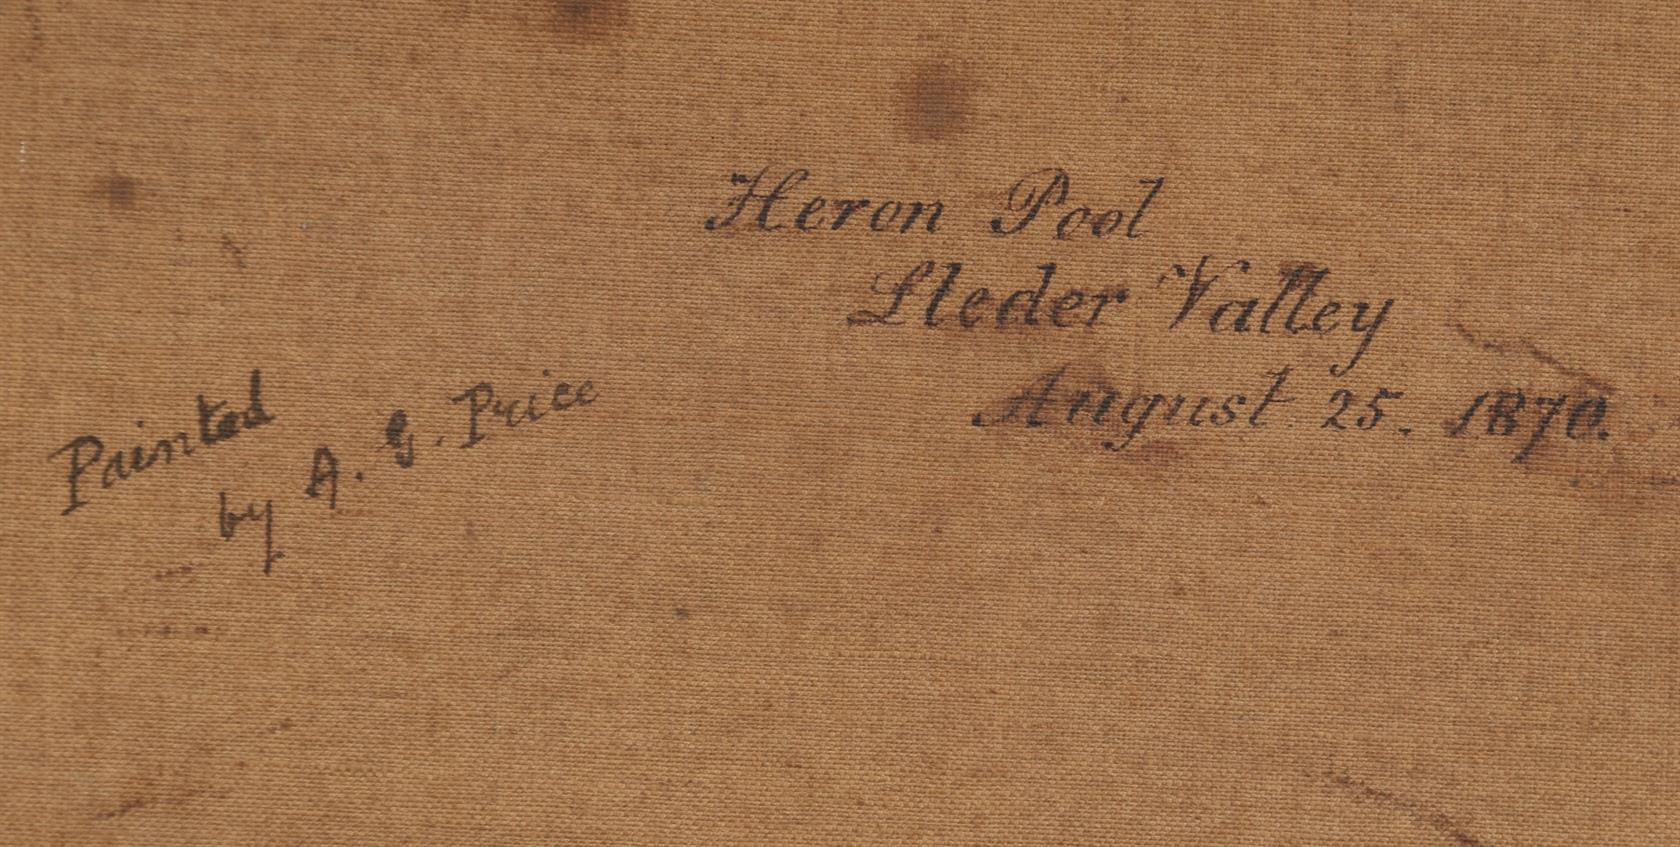 Heron Pool
Lleder Valley
August 25. 1870.
Painted
by A. G. Price